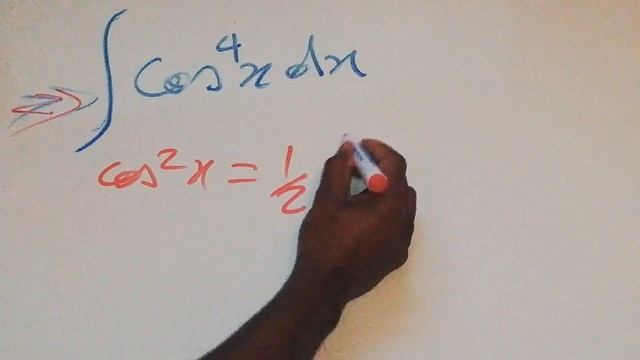 ∫ cos⁴x dx
cos²x = 1/2